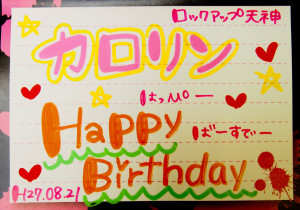 ロックアップ天神
カロリン
はっぴー
Happy
ばーすでー
Birthday
H27.08.21